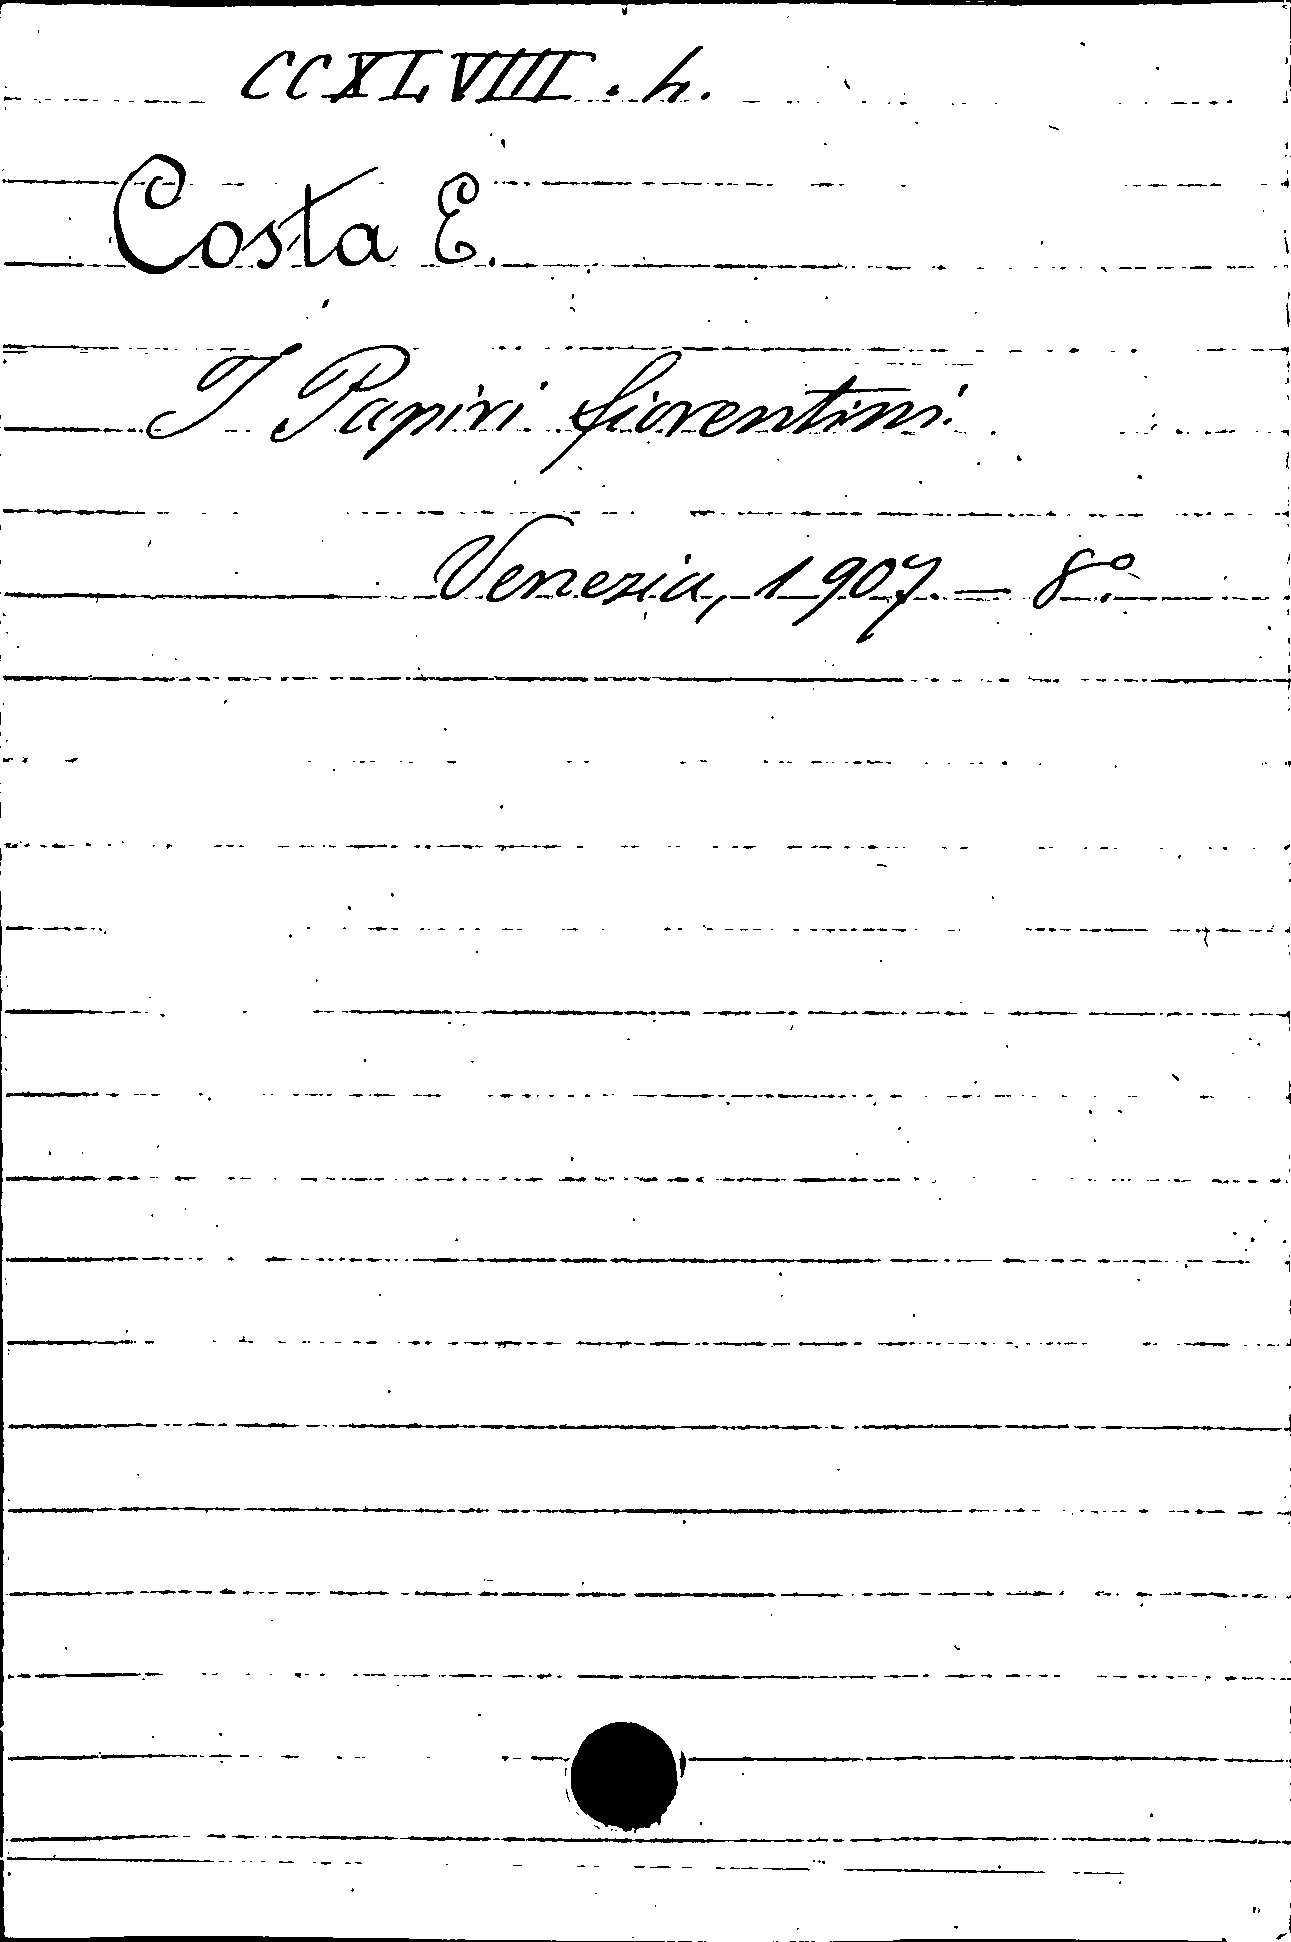 CCXLVIII. h.
Costa E.
I Papiri fiorentini.
Venezia, 1907. — 8º.